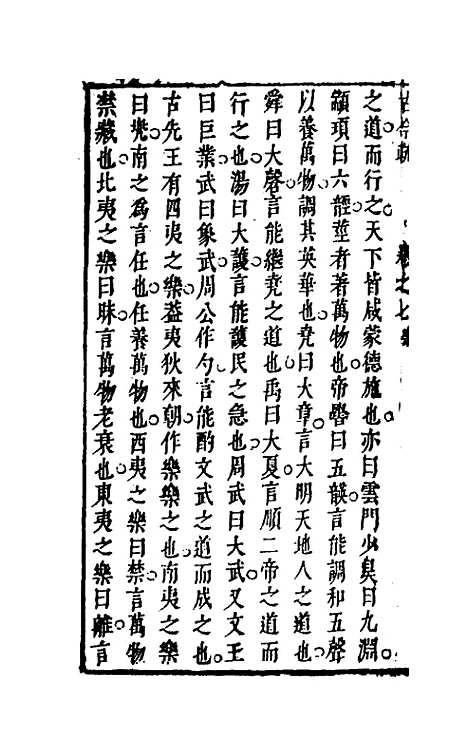 之道而行之天下皆咸蒙德施也亦曰雲門少昊曰九淵
顓頊曰六莖莖者著萬物也帝嚳曰五韺言能調和五聲
以養萬物調其英華也堯曰大章言大明天地人之道也
舜曰大韶言能繼堯之道也禹曰大夏言順二帝之道而
行之也湯曰大護言能護民之急也周武曰大武又文王
曰巨業武曰象武周公作勺言能酌文武之道而成之也
古先王有四夷之樂蓋夷狄來朝作樂樂之也南夷之樂
曰兠南之為言任也任養萬物也西夷之樂曰禁言萬物
禁藏也北夷之樂曰昧言萬物老衰也東夷之樂曰離言